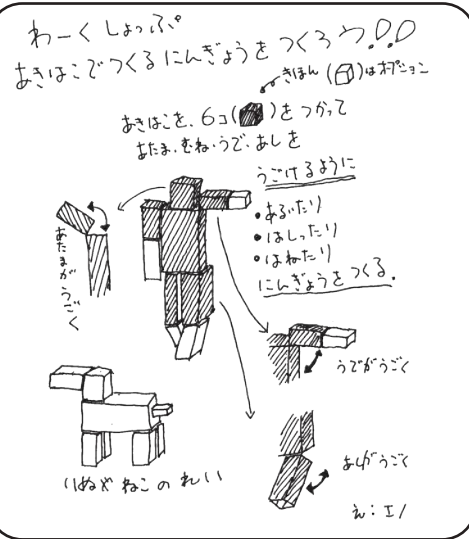 わーくしょっぷ
あきはこでつくるにんぎょうをつくろう!!!
きほん(　)はオプション
あきはこを、6コ(　)をつかって
あたま、むね・うで、あしを
うごけるように
・あるいたり
・はしったり
・はねたり
にんぎょうをつくる.
あたまがうごく
うでがうごく
あしがうごく
いぬやねこのれい
え:エノ